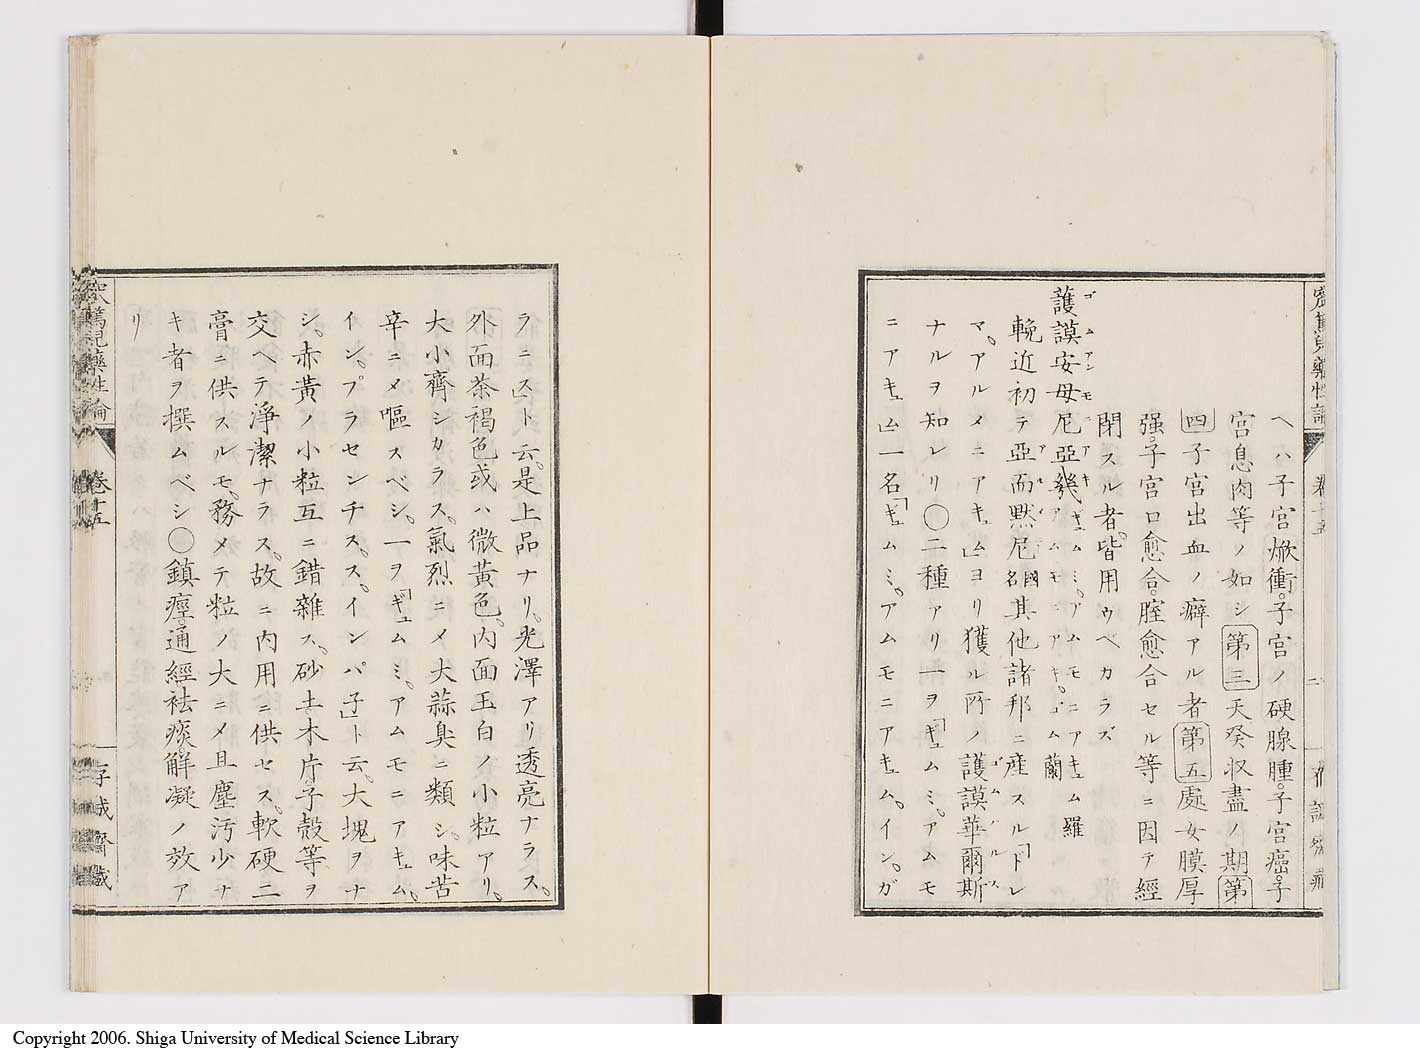 ヘハ子宮焮衝。子宮ノ硬腺腫。子宮癌。子
宮息肉等ノ如シ第三天癸収盡ノ期第
四子宮出血ノ癖アル者第五處女膜厚
强。子宮口愈合。腟愈合セル等ニ因テ經
閉スル者。皆用ウベカラズ
護謨安母尼亞幾 ギュムミ。アムモニアキュム羅 アムモニアキ。ゴム蘭
ゴムアンモニアキ
輓近初テ亞而黙尼國名其他諸邦ニ産スル「ドレ
マ。アルメニアキュム」ヨリ獲ル所ノ護謨華爾斯
ナルヲ知レリ〇二種アリ一ヲ「ギュムミ。アムモ
ニアキュム一名「ギュムミ。アムモニアキュム。イン。ガ
ラニス」ト云。是上品ナリ。光澤アリ透亮ナラス。
外面茶褐色或ハ微黄色。内面玉白ノ小粒アリ。
大小齊シカラス。氣烈ニメ大蒜臭ニ類シ。味苦
辛ニメ嘔スベシ。一ヲ「ギュムミ。アムモニアキュム。
イン。プラセンチス。インパ子」ト云。大塊ヲナ
シ。赤黄ノ小粒互ニ錯雜ス。砂土木片。子殻等ヲ
交ヘテ淨潔ナラス。故ニ内用ニ供セス。軟硬二
膏ニ供スルモ。務メテ粒ノ大ニメ且塵汚少ナ
キ者ヲ撰ムベシ〇鎮痙。通經。祛痰。解凝ノ効ア
リ
窊篤兒藥性論
卷十五